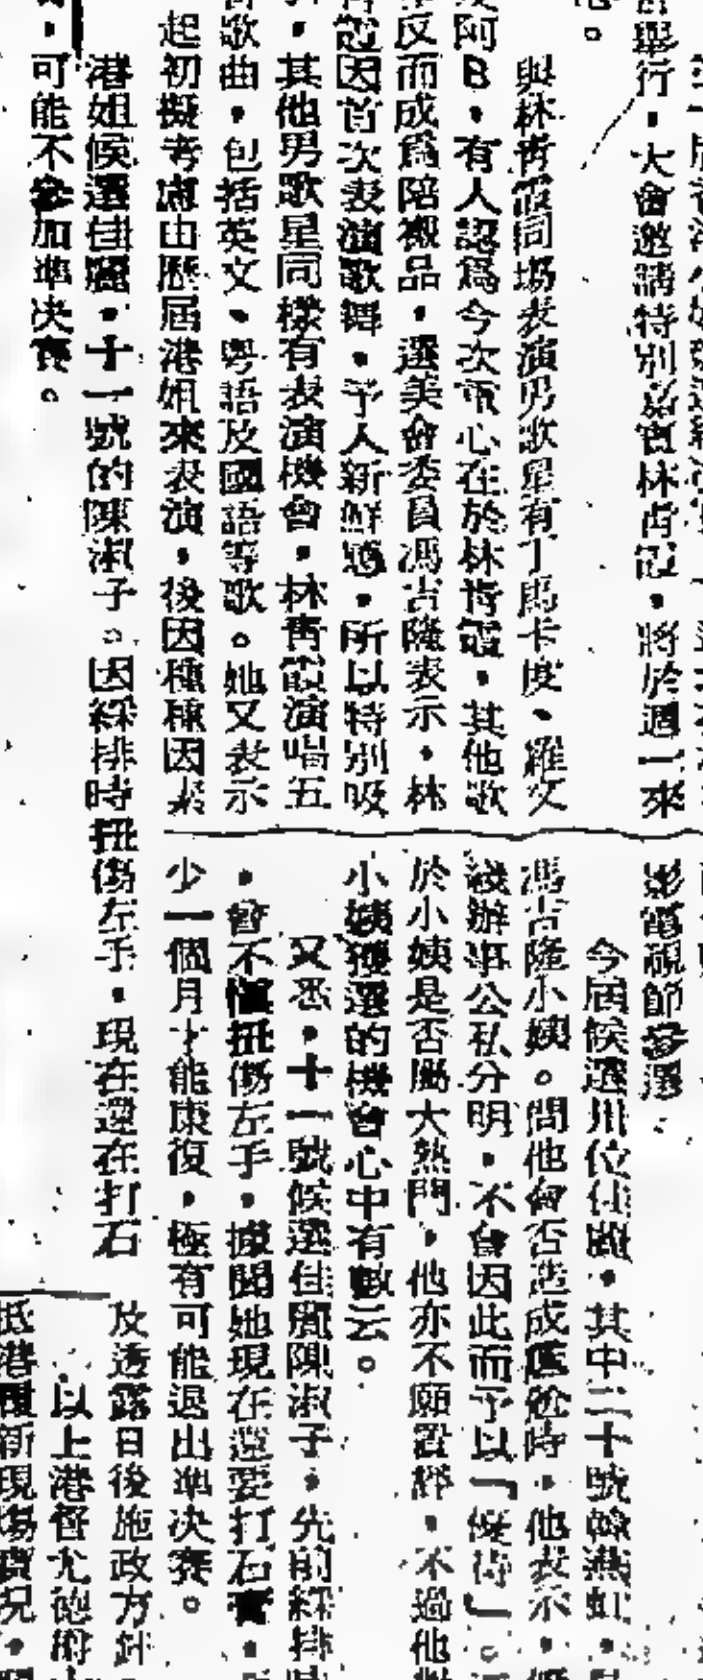 宮舉行，大會邀請特別嘉賓林青霞，將於週一來
與林青霞同場表演男歌星有丁馬卡度、羅文
及阿B，有人認為今次重心在於林青霞，其他歌
反而成為陪襯品，選美會委員馮吉隆表示，林
青霞因首次表演歌舞，予人新鮮感，所以特別吸
，其他男歌星同樣有表演機會，林青霞演唱五
首歌曲，包括英文、粵語及國語等歌。她又表示
起初擬考慮由歷屆港姐來表演，後因種種因素
港姐候選佳麗，十一號的陳淑子。因綵排時扭傷左手，現在還在打石
，可能不參加準決賽。
影電視節參選
今屆候選卅位佳麗，其中二十號韓燕虹，
馮吉隆小姨。問他會否造成尷尬時，他表示，
辦事公私分明，不會因此而予以「優待」。
於小姨是否屬大熱門，他亦不願置評，不過他
小姨獲選的機會心中有數云。
又悉，十一號候選佳麗陳淑子，先前綵排時
，曾不慎扭傷左手，據聞她現在還要打石膏，
少一個月才能康復，極有可能退出準決賽。
及透露日後施政方針，
以上港督尤德
抵港履新現場實況，